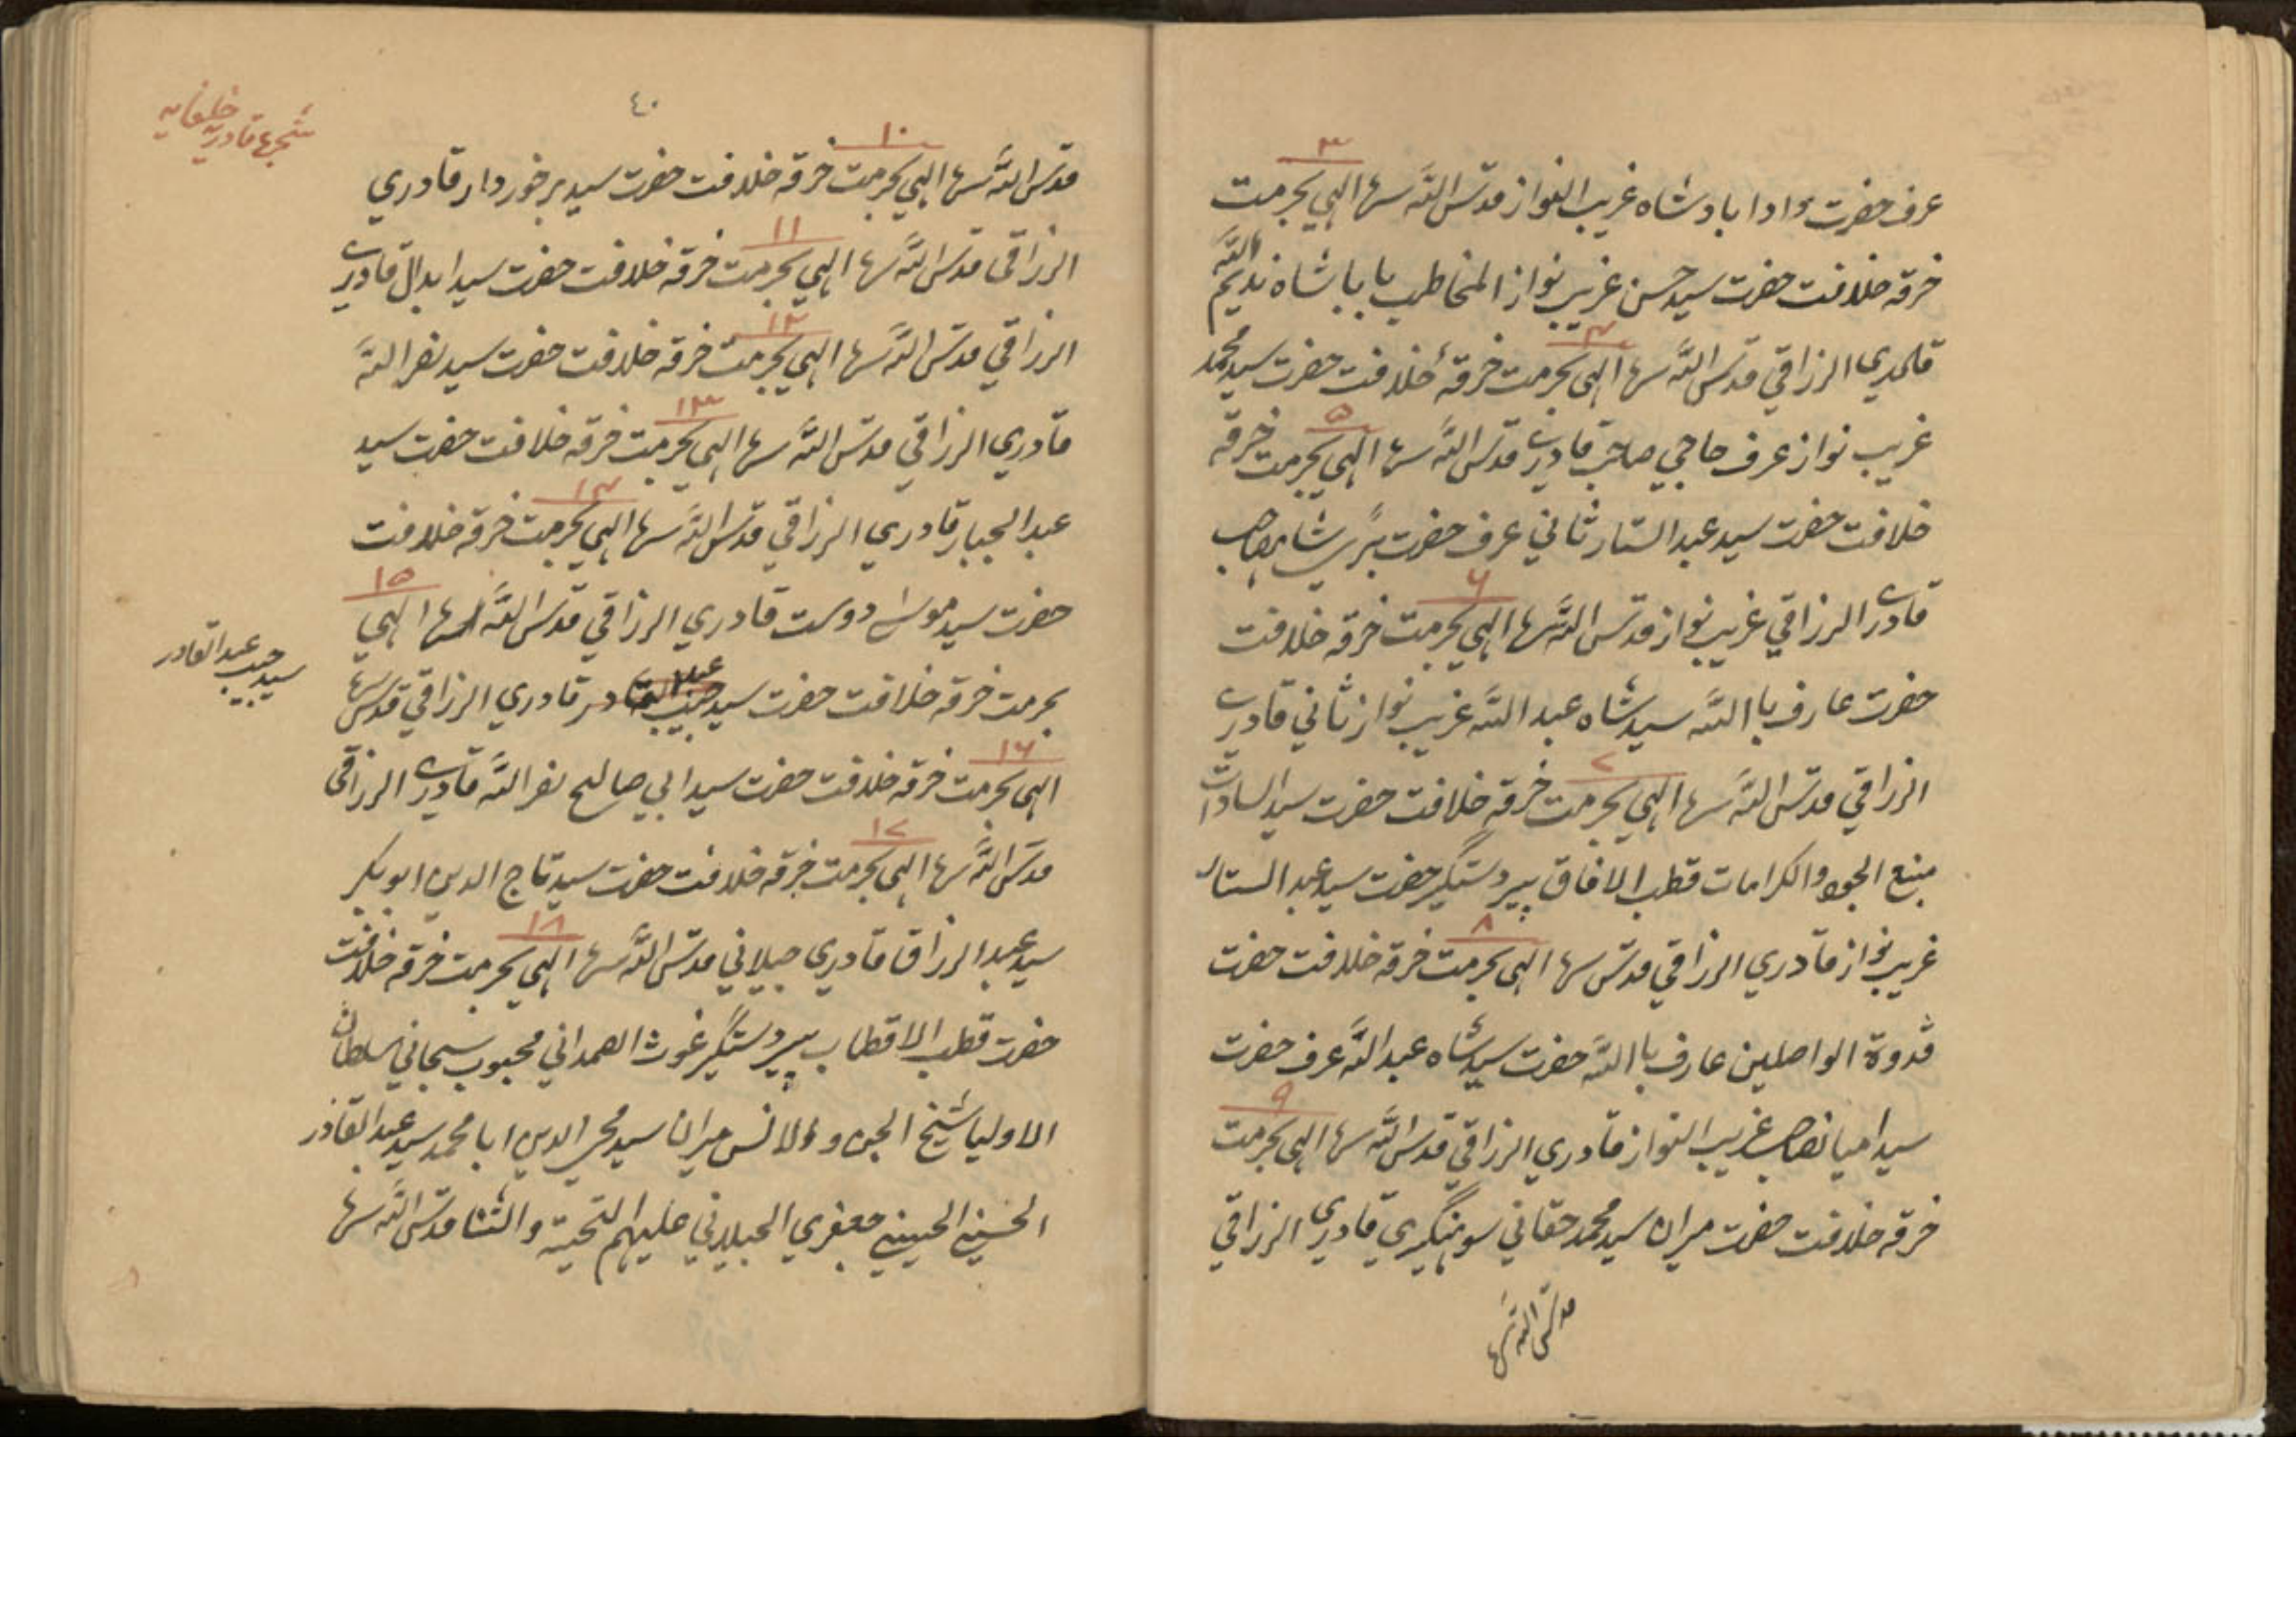 ۳
عرف حضرت دادا بادشاه غریب النواز قدّس اللّه سرها الهي بحرمت
خرقه خلافت حضرت سید حسن غریب نواز المخاطب بابا شاه ندیم اللّه
۴
قلمدي الرزاقي قدّس اللّه سرها الهي بحرمت خرقهٔ خلافت حضرت سید محمد
۵
غریب نواز عرف حاجي صاحب قادري قدّس اللّه سرها الهي بحرمت خرقه
خلافت حضرت سید عبد الستار ثاني عرف حضرت بڑے شاه صاحب
۶
قادري الرزاقي غریب نواز قدّس اللّه سرها الهي بحرمت خرقه خلافت
حضرت عارف با اللّه سید شاه عبد اللّه غریب نواز ثاني قادري
۷
الرزاقي قدّس اللّه سرها الهي بحرمت خرقه خلافت حضرت سید السادات
منبع الجود والکرامات قطب الافاق پیر دستگیر حضرت سید عبد الستار
۸
غریب نواز قادري الرزاقي قدّس سرها الهي بحرمت خرقه خلافت حضرت
قدوة الواصلین عارف با اللّه حضرت سید شاه عبد اللّه عرف حضرت
۹
سید امیانصاحب غریب النواز قادري الرزاقي قدّس اللّه سرها الهي بحرمت
خرقه خلافت حضرت میران سید محمد حقاني سوہنگیري قادري الرزاقي
قدّس اللّه سرها
۴۰
شجرهاء قادریه خلیفایه
۱۰
قدّس اللّه سرها الهي بحرمت خرقه خلافت حضرت سید برخوردار قادري
۱۱
الرزاقي قدّس اللّه سرها الهي بحرمت خرقه خلافت حضرت سید ابدال قادري
۱۲
الرزاقي قدّس اللّه سرها الهي بحرمت خرقه خلافت حضرت سید نصر اللّه
۱۳
قادري الرزاقي قدّس اللّه سرها الهي بحرمت خرقه خلافت حضرت سید
۱۴
عبد الجبار قادري الرزاقي قدّس اللّه سرها الهي بحرمت خرقه خلافت
۱۵
حضرت سید موسٰے دوست قادري الرزاقي قدّس اللّه سرها الهي
بحرمت خرقه خلافت حضرت سید حبیب عبد القادر قادري الرزاقي قدّس سرها
سید حبیب عبد القادر
۱۶
الهي بحرمت خرقه خلافت حضرت سید ابي صالح نصر اللّه قادري الرزاقي
۱۷
قدّس اللّه سرها الهي بحرمت خرقه خلافت حضرت سید تاج الدین ابوبکر
۱۸
سید عبد الرزاق قادري جیلاني قدّس اللّه سرها الهي بحرمت خرقه خلافت
حضرت قطب الاقطاب پیر دستگیر غوث الصمداني محبوب سبحاني سلطان
الاولیا شیخ الجن و الانس میران سید محي الدین ابا محمد سید عبد القادر
الحسني الحسیني جعفري الجیلاني علیهم التحیته والثنا قدّس اللّه سرها